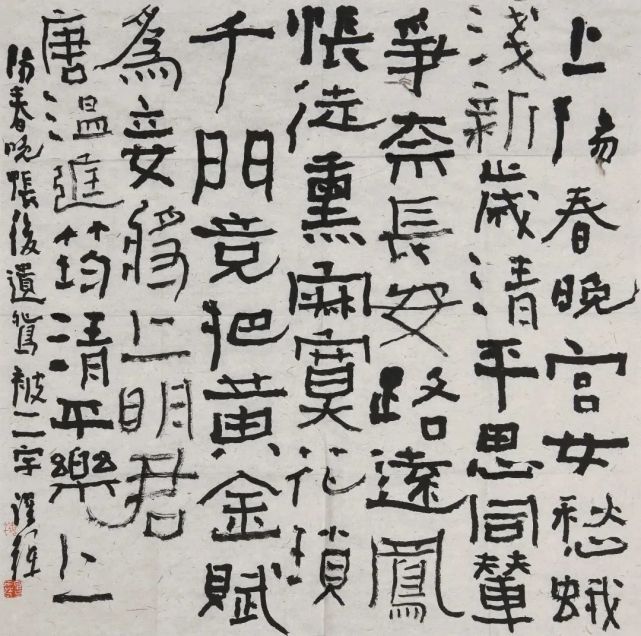 上陽春晚宮女愁蛾
淺新歲清平思同輦
爭奈長安路遠鳳
帳徒熏寂寞花鎖
千門竟把黃金賦
為妾將上明君
唐溫庭筠清平樂上
陽春晚帳後遺鴛被二字